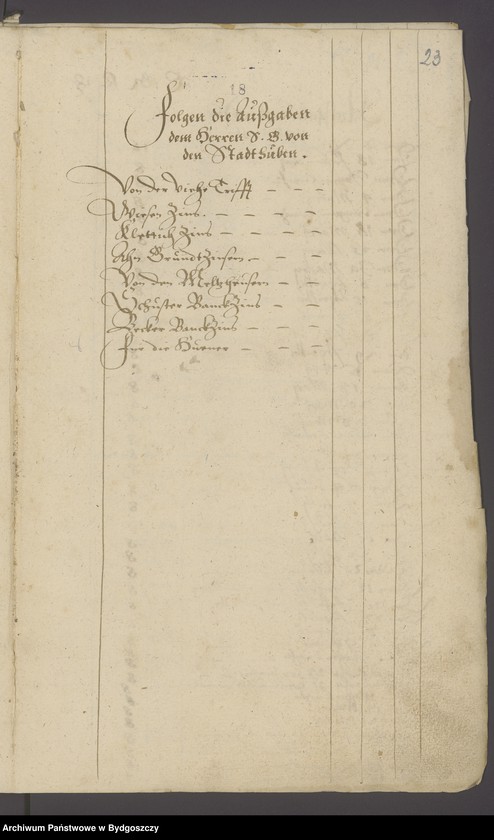 23
18
Folgen die Außgaben
dem Herren S. G. von
den Stadthuben.
Von der Viehe Trifft - - -
Wiesen Zins. - - - -
Klettich Zins - - - -
Ahn Grundtzinsen - - -
Von den Meltzheusern - -
Schuster Banckzins - - -
Becker Banckzins - - -
Für die Huener - - -
Archiwum Państwowe w Bydgoszczy